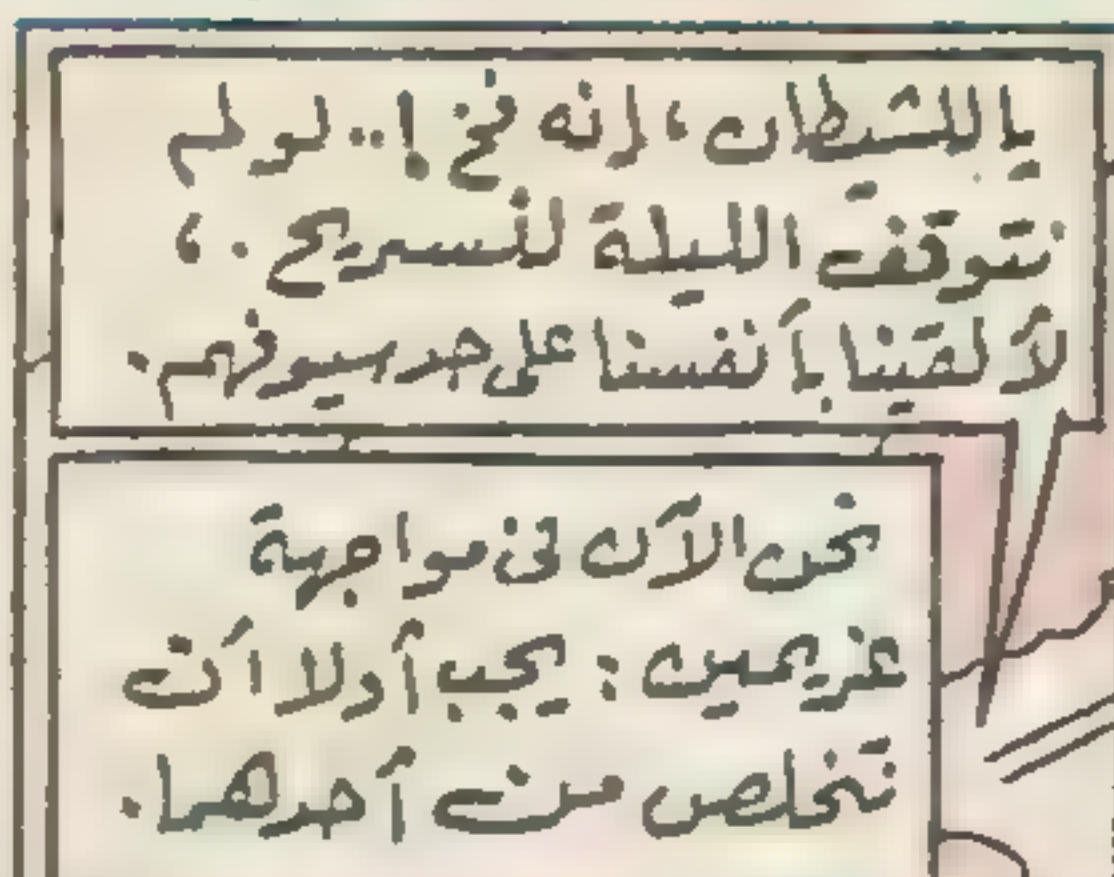 يا للشيطان، إنه فخ !.. لو لم
نتوقف الليلة لنسريح . ،
لألقينا بأنفسنا على حد سيوفهم.
نحن الآن فى مواجهة
غريمين : يجب أولا أن
نتخلص من أحدهما.